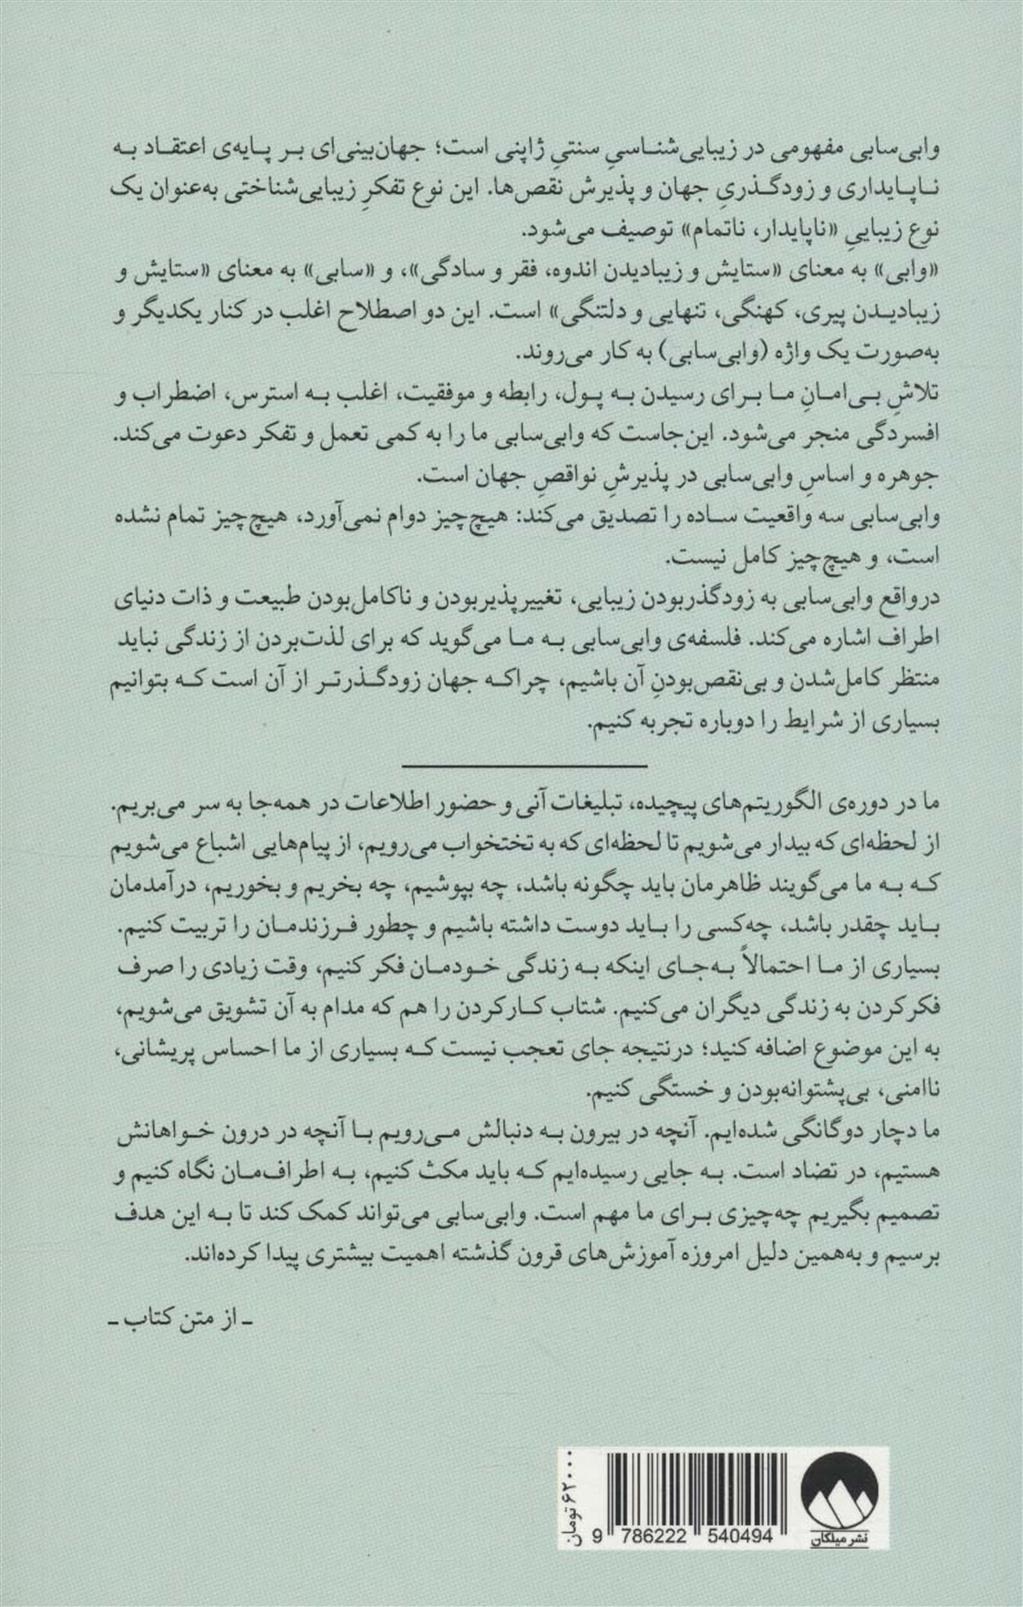 وابی‌سابی مفهومی در زیبایی‌شناسیِ سنتیِ ژاپنی است؛ جهان‌بینی‌ای بر پایه‌ی اعتقاد به
ناپایداری و زودگذریِ جهان و پذیرش نقص‌ها. این نوع تفکرِ زیبایی‌شناختی به‌عنوان یک
نوع زیباییِ «ناپایدار، ناتمام» توصیف می‌شود.
«وابی» به معنای «ستایش و زیبادیدن اندوه، فقر و سادگی»، و «سابی» به معنای «ستایش و
زیبادیدن پیری، کهنگی، تنهایی و دلتنگی» است. این دو اصطلاح اغلب در کنار یکدیگر و
به‌صورت یک واژه (وابی‌سابی) به کار می‌روند.
تلاشِ بی‌امانِ ما برای رسیدن به پول، رابطه و موفقیت، اغلب به استرس، اضطراب و
افسردگی منجر می‌شود. این‌جاست که وابی‌سابی ما را به کمی تعمل و تفکر دعوت می‌کند.
جوهره و اساسِ وابی‌سابی در پذیرشِ نواقصِ جهان است.
وابی‌سابی سه واقعیت ساده را تصدیق می‌کند: هیچ‌چیز دوام نمی‌آورد، هیچ‌چیز تمام نشده
است، و هیچ‌چیز کامل نیست.
درواقع وابی‌سابی به زودگذربودن زیبایی، تغییرپذیربودن و ناکامل‌بودن طبیعت و ذات دنیای
اطراف اشاره می‌کند. فلسفه‌ی وابی‌سابی به ما می‌گوید که برای لذت‌بردن از زندگی نباید
منتظر کامل‌شدن و بی‌نقص‌بودنِ آن باشیم، چراکه جهان زودگذرتر از آن است که بتوانیم
بسیاری از شرایط را دوباره تجربه کنیم.
ما در دوره‌ی الگوریتم‌های پیچیده، تبلیغات آنی و حضور اطلاعات در همه‌جا به سر می‌بریم.
از لحظه‌ای که بیدار می‌شویم تا لحظه‌ای که به تختخواب می‌رویم، از پیام‌هایی اشباع می‌شویم
که به ما می‌گویند ظاهرمان باید چگونه باشد، چه بپوشیم، چه بخریم و بخوریم، درآمدمان
باید چقدر باشد، چه‌کسی را باید دوست داشته باشیم و چطور فرزندمان را تربیت کنیم.
بسیاری از ما احتمالاً به‌جای اینکه به زندگی خودمان فکر کنیم، وقت زیادی را صرف
فکرکردن به زندگی دیگران می‌کنیم. شتاب کارکردن را هم که مدام به آن تشویق می‌شویم،
به این موضوع اضافه کنید؛ درنتیجه جای تعجب نیست که بسیاری از ما احساس پریشانی،
ناامنی، بی‌پشتوانه‌بودن و خستگی کنیم.
ما دچار دوگانگی شده‌ایم. آنچه در بیرون به دنبالش می‌رویم با آنچه در درون خواهانش
هستیم، در تضاد است. به جایی رسیده‌ایم که باید مکث کنیم، به اطراف‌مان نگاه کنیم و
تصمیم بگیریم چه‌چیزی برای ما مهم است. وابی‌سابی می‌تواند کمک کند تا به این هدف
برسیم و به‌همین دلیل امروزه آموزش‌های قرون گذشته اهمیت بیشتری پیدا کرده‌اند.
ـ از متن کتاب ـ
۶۲۰۰۰ تومان
9 786222 540494
نشر میلکان